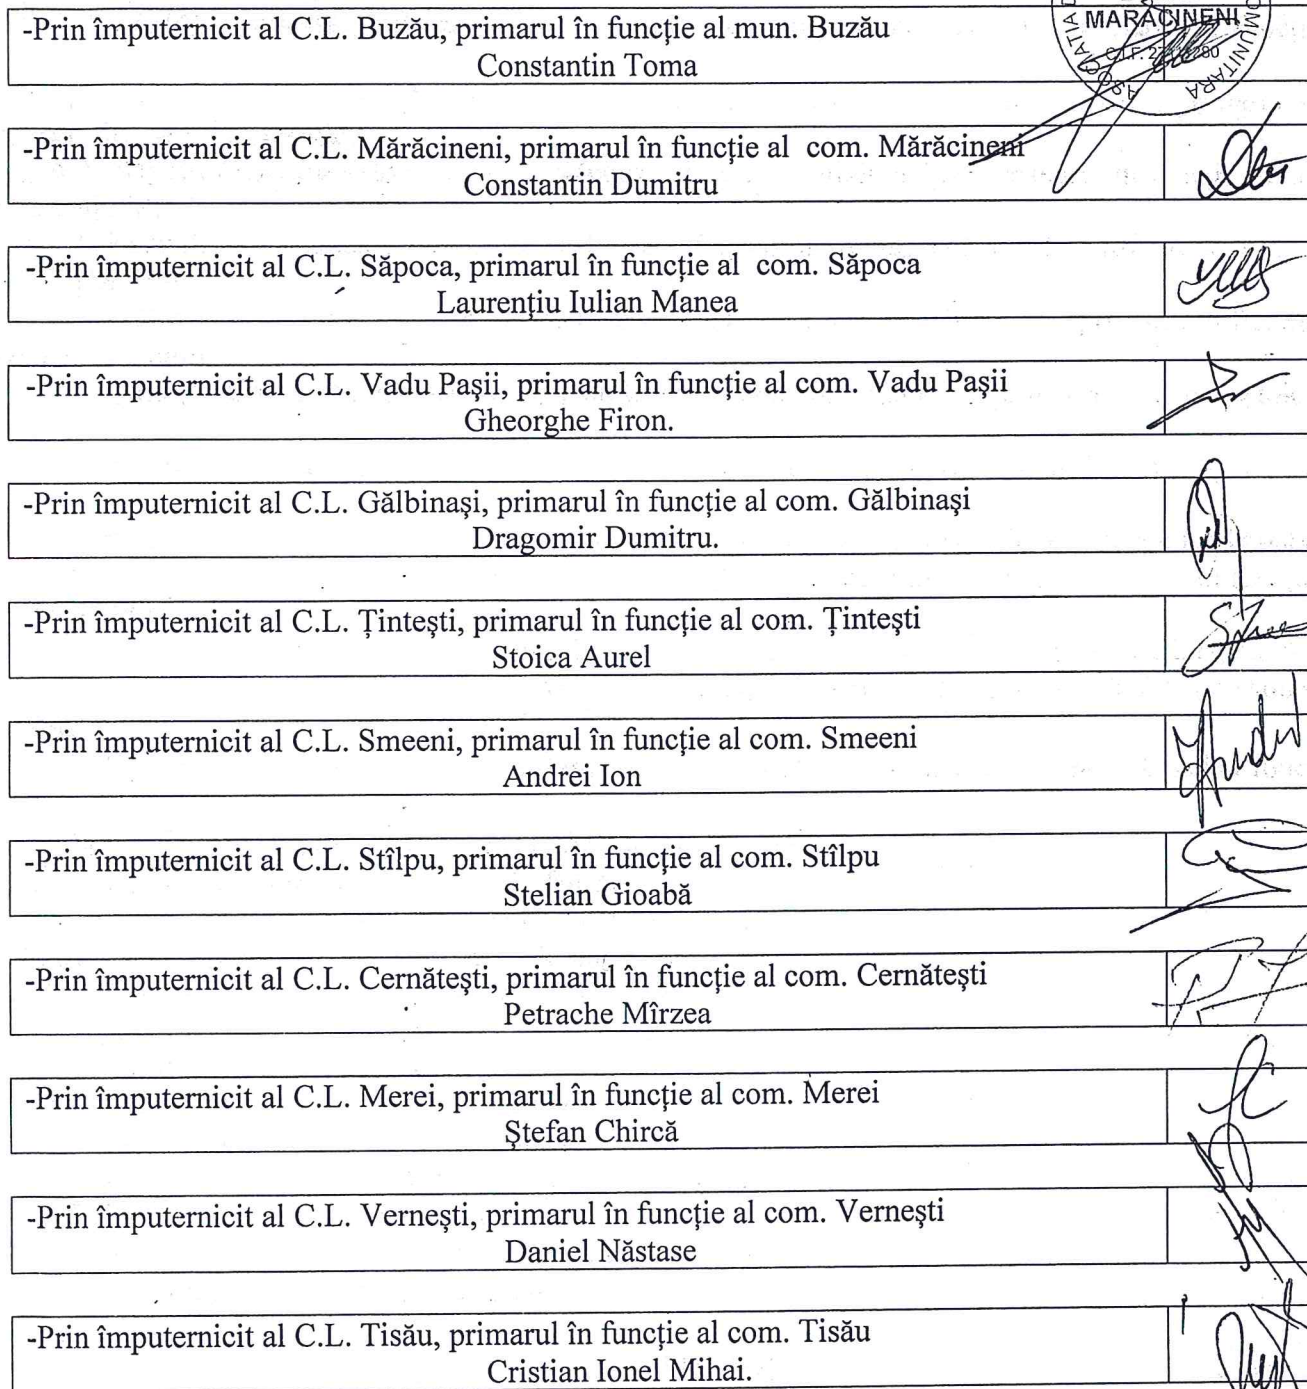 MARACINENI
-Prin împuternicit al C.L. Buzău, primarul în funcţie al mun. Buzău
Constantin Toma
-Prin împuternicit al C.L. Mărăcineni, primarul în funcţie al com. Mărăcineni
Constantin Dumitru
-Prin împuternicit al C.L. Săpoca, primarul în funcţie al com. Săpoca
Laurenţiu Iulian Manea
-Prin împuternicit al C.L. Vadu Paşii, primarul în funcţie al com. Vadu Paşii
Gheorghe Firon.
-Prin împuternicit al C.L. Gălbinaşi, primarul în funcţie al com. Gălbinaşi
Dragomir Dumitru.
-Prin împuternicit al C.L. Ţinteşti, primarul în funcţie al com. Ţinteşti
Stoica Aurel
-Prin împuternicit al C.L. Smeeni, primarul în funcţie al com. Smeeni
Andrei Ion
-Prin împuternicit al C.L. Stîlpu, primarul în funcţie al com. Stîlpu
Stelian Gioabă
-Prin împuternicit al C.L. Cernăteşti, primarul în funcţie al com. Cernăteşti
Petrache Mîrzea
-Prin împuternicit al C.L. Merei, primarul în funcţie al com. Merei
Ştefan Chircă
-Prin împuternicit al C.L. Verneşti, primarul în funcţie al com. Verneşti
Daniel Năstase
-Prin împuternicit al C.L. Tisău, primarul în funcţie al com. Tisău
Cristian Ionel Mihai.